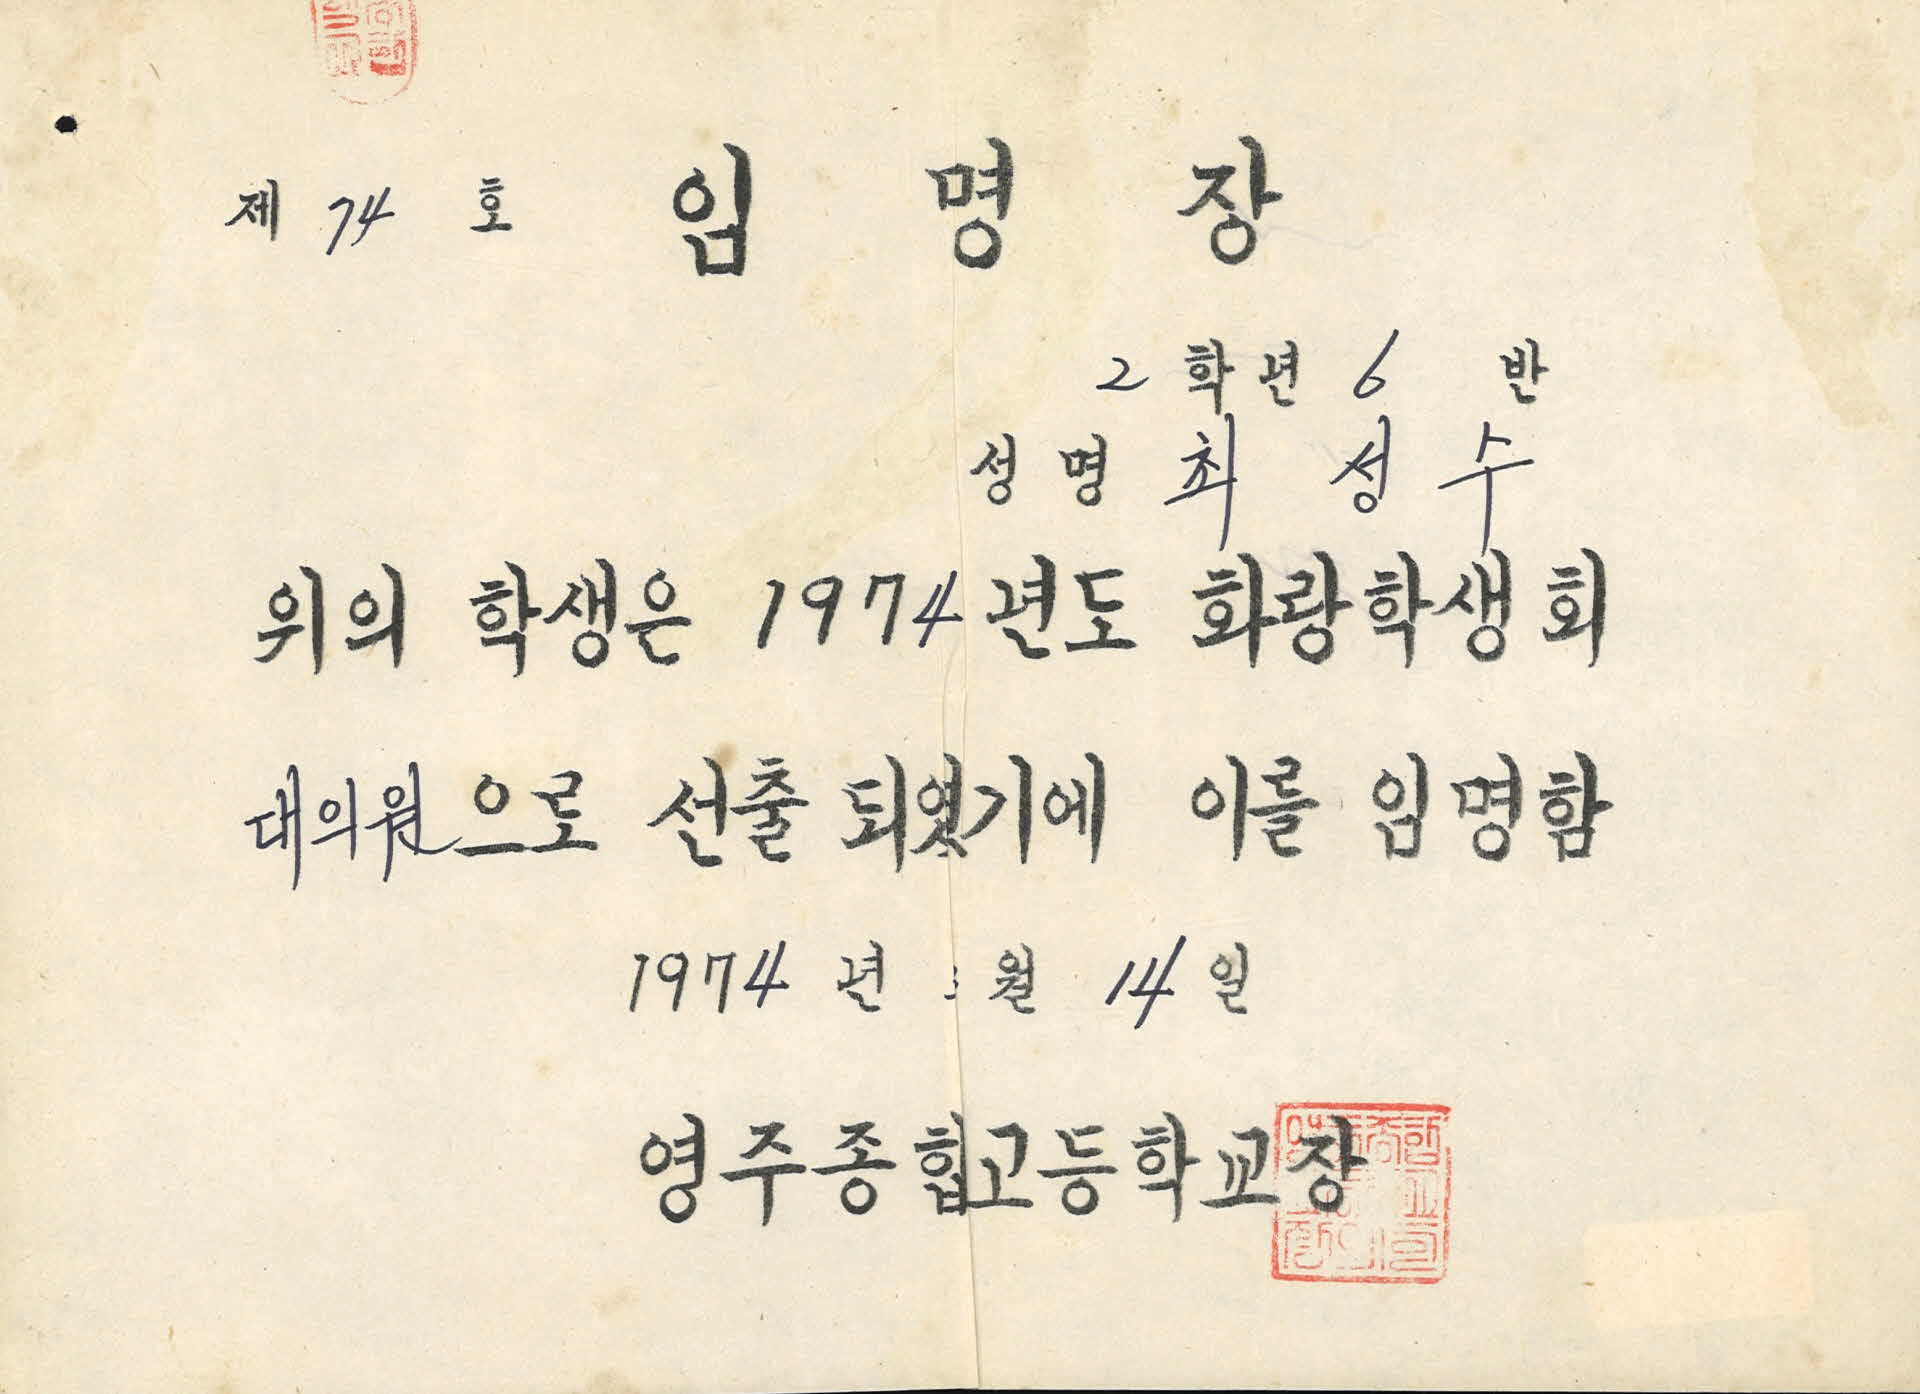 제 74 호 임 명 장
2 학년 6 반
성명 최 성 수
위의 학생은 1974 년도 화랑학생회
대의원으로 선출 되엿기에 이를 임명함
1974 년 월 14 일
영주종합고등학교장